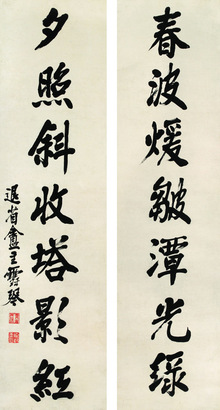 春波煖皺潭光綠
夕照斜收塔影紅
退省盦主霽琴